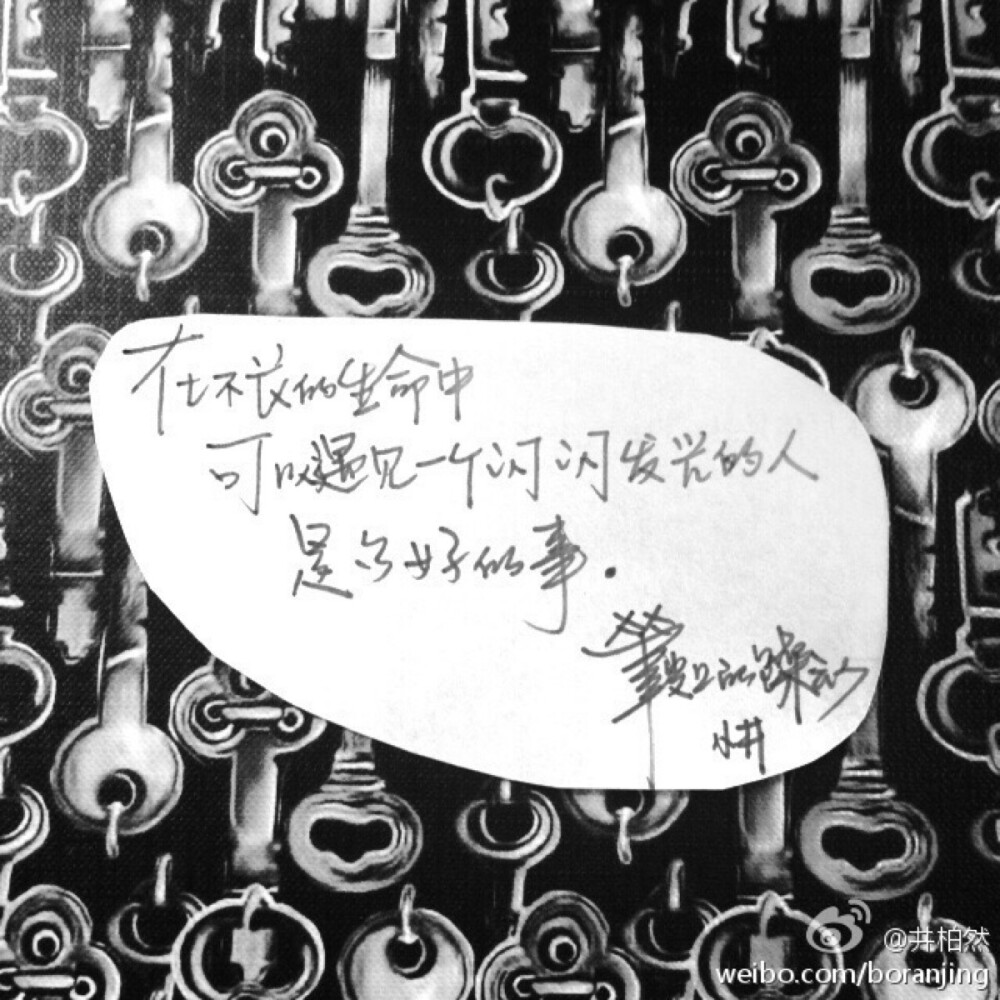 在不长的生命中
可以遇见一个闪闪发光的人
是个好的事.
躁动
小井
@井柏然
weibo.com/boranjing